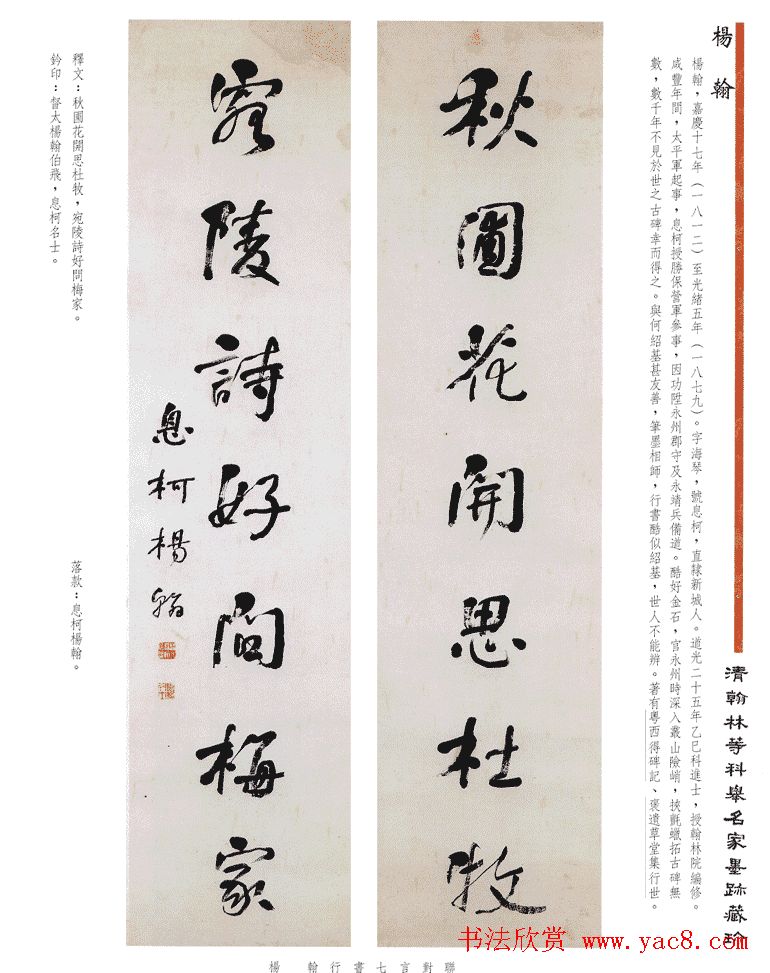 楊翰
楊翰，嘉慶十七年（一八一二）至光緒五年（一八七九）。字海琴，號息柯，直隸新城人。道光二十五年乙巳科進士，授翰林院編修。
咸豐年間，太平軍起事，息柯授勝保營軍參事，因功陞永州郡守及永靖兵備道。酷好金石，官永州時深入叢山險峭，挾氈蠟拓古碑無
數，數千年不見於世之古碑幸而得之。與何紹基甚友善，筆墨相師，行書酷似紹基，世人不能辨。著有粵西得碑記、褒遺草堂集行世。
清翰林等科舉名家墨跡藏珍
秋圃花開思杜牧
宛陵詩好問梅家
息柯楊翰
釋文：秋圃花開思杜牧，宛陵詩好問梅家。
落款：息柯楊翰。
鈐印：督太楊翰伯飛，息柯名士。
楊翰行書七言對聯
书法欣赏 www.yac8.com